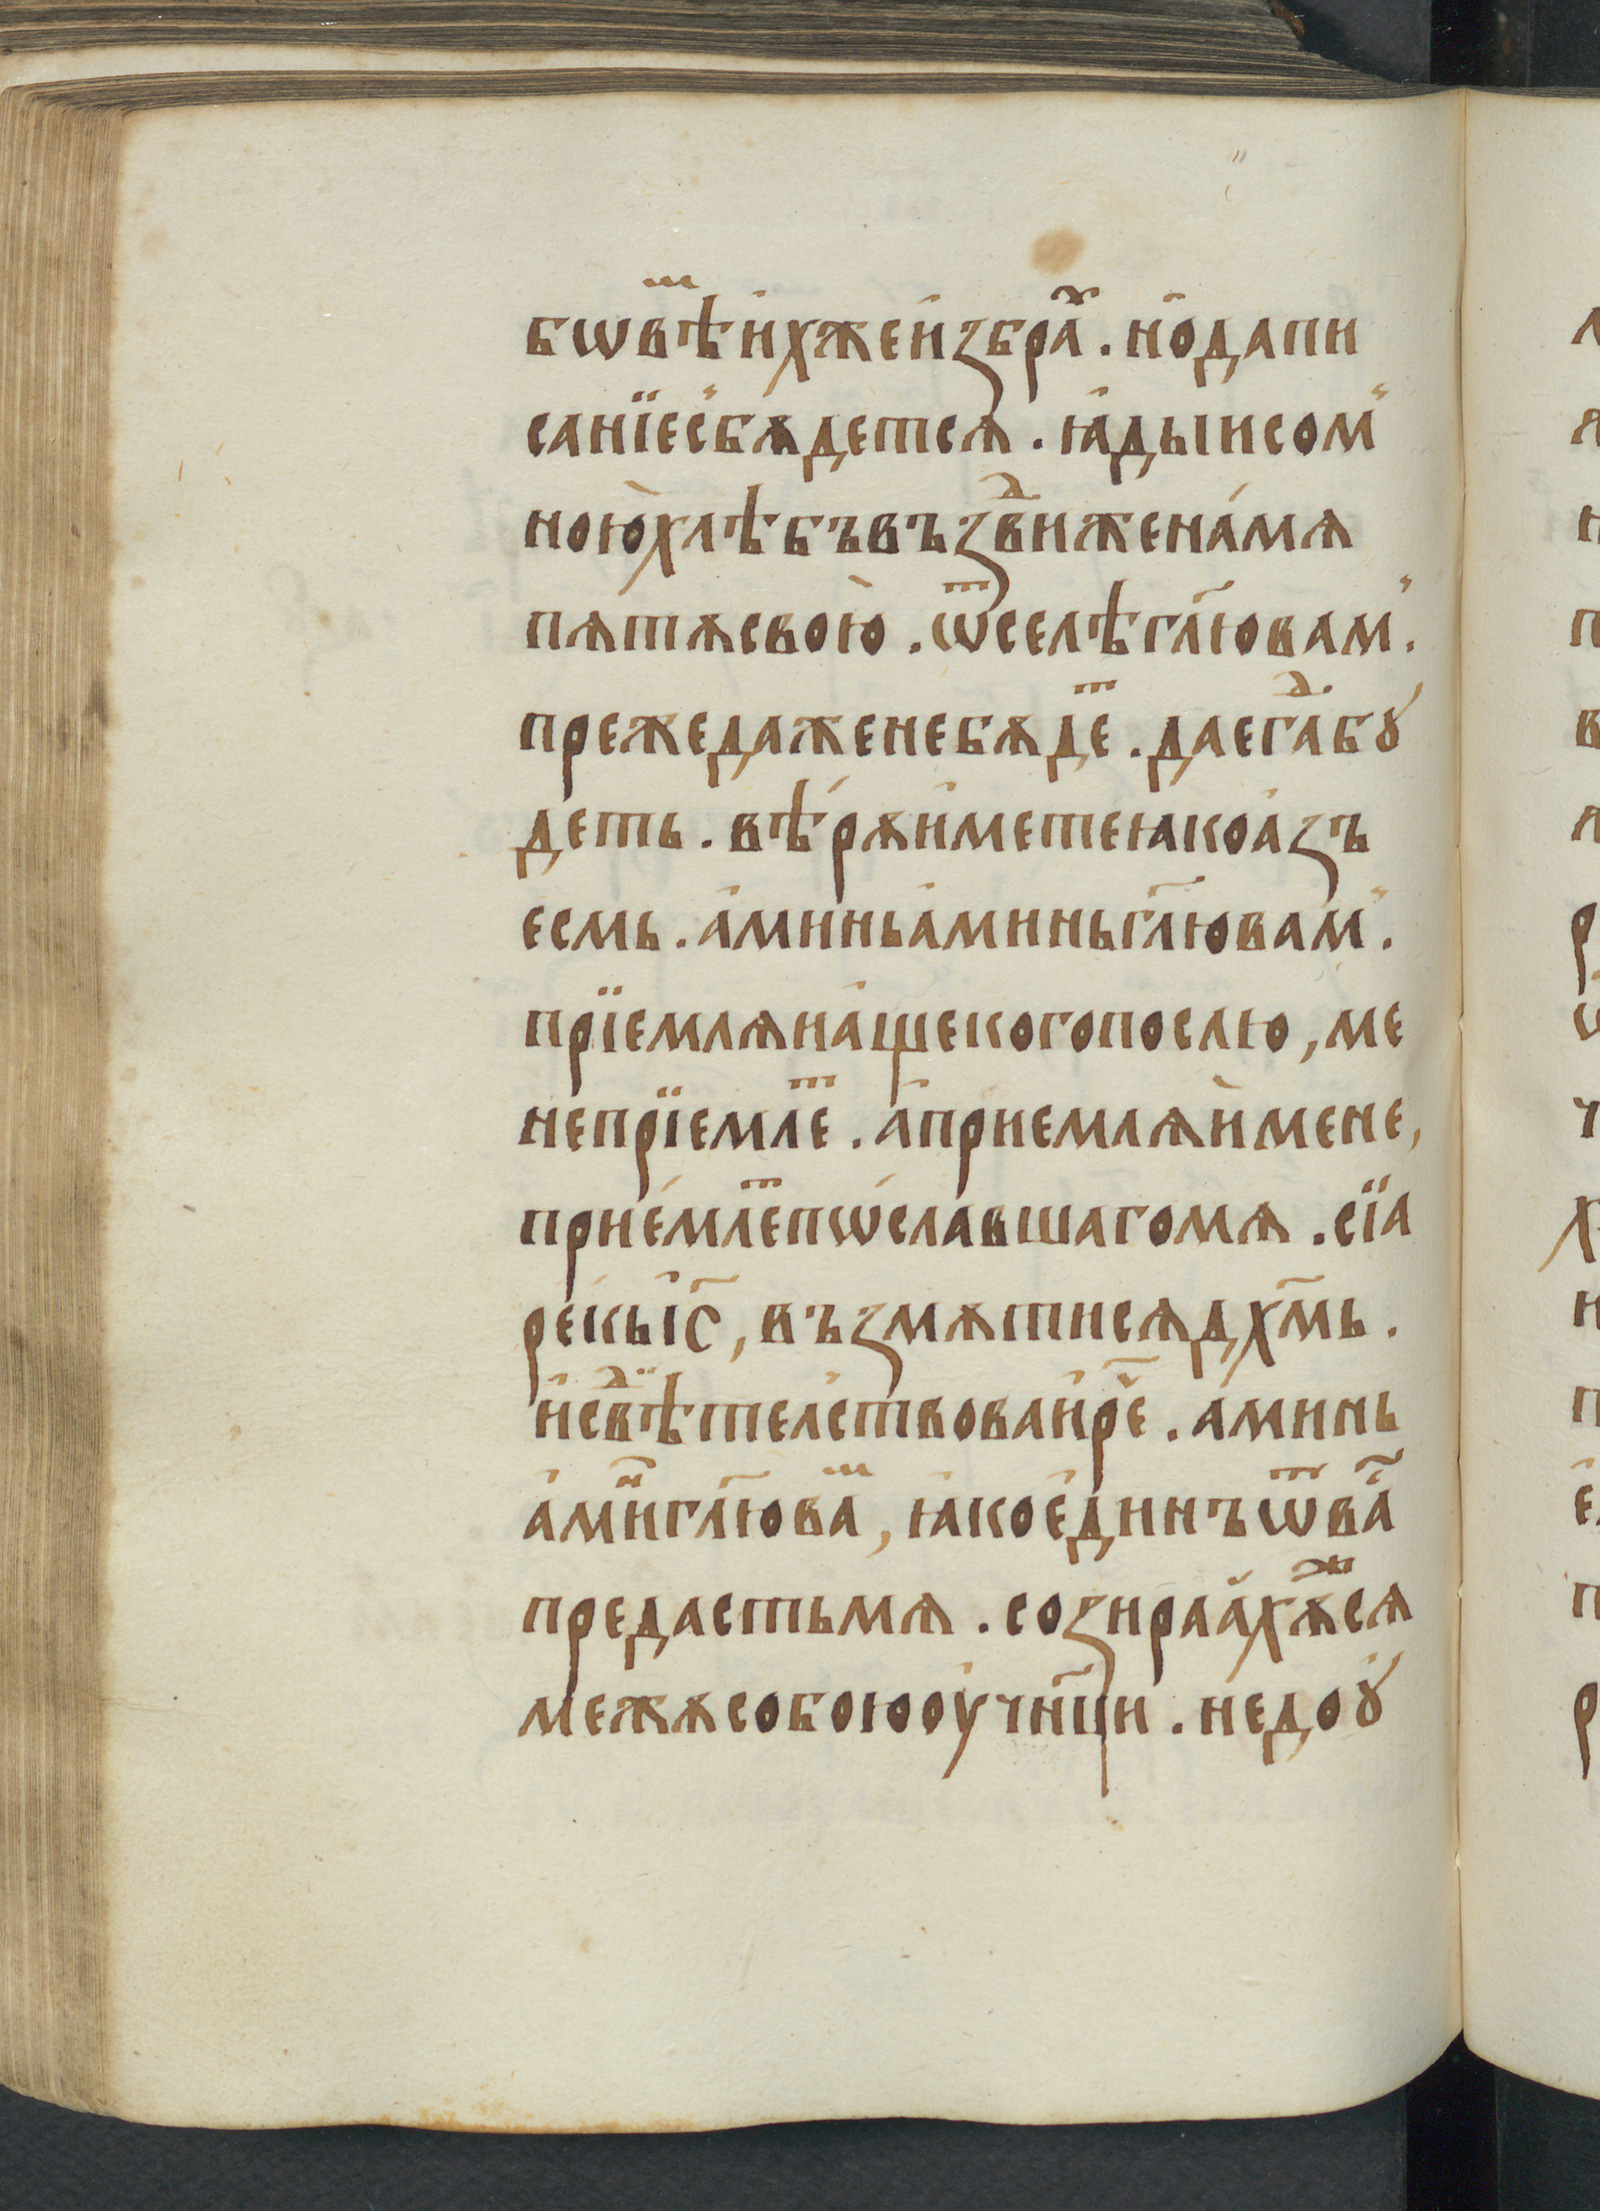 бѡвⷨѣ и҆хже и҆збраⷯ . но҆ да пи
санїе съ бѫдетсѧ . ꙗ҆дыи со м
ною̀ хлѣбъ въздвⷤиже на́ мѧ
пѧтѫ свою̀ . ѿселѣ гл҃ю вам̾ .
преже даже не бѫдеⷮ . да егⷣа бꙋ
деть . вѣ́рѫ и҆мете ꙗко а҆зъ
есмь . а҆минь а҆минь гл҃ю вам̾ .
прїемлѧи а҆ще кого послю , ме
не прїемлеⷮ . а҆ приемлѧѝ мене ,
прие́млеⷮ пѡ́славшаго мѧ . сїа
ре́къ і҆с҃ , възмѧтисѧ дх҃мь .
и҆ свⷣѣтелствова и҆ рⷱ҇е . аминь
а҆миⷩ҇ гл҃ю ваⷨ , ꙗ҆ко е҆динъ ѿ ва́ⷭ҇
предасть мѧ . созираа҆хѫⷤсѧ
межѫ собою оу҆чн҃ци . недоꙋ